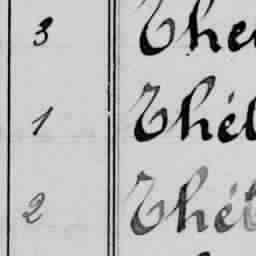 3 The
1 Thél
2 Thél